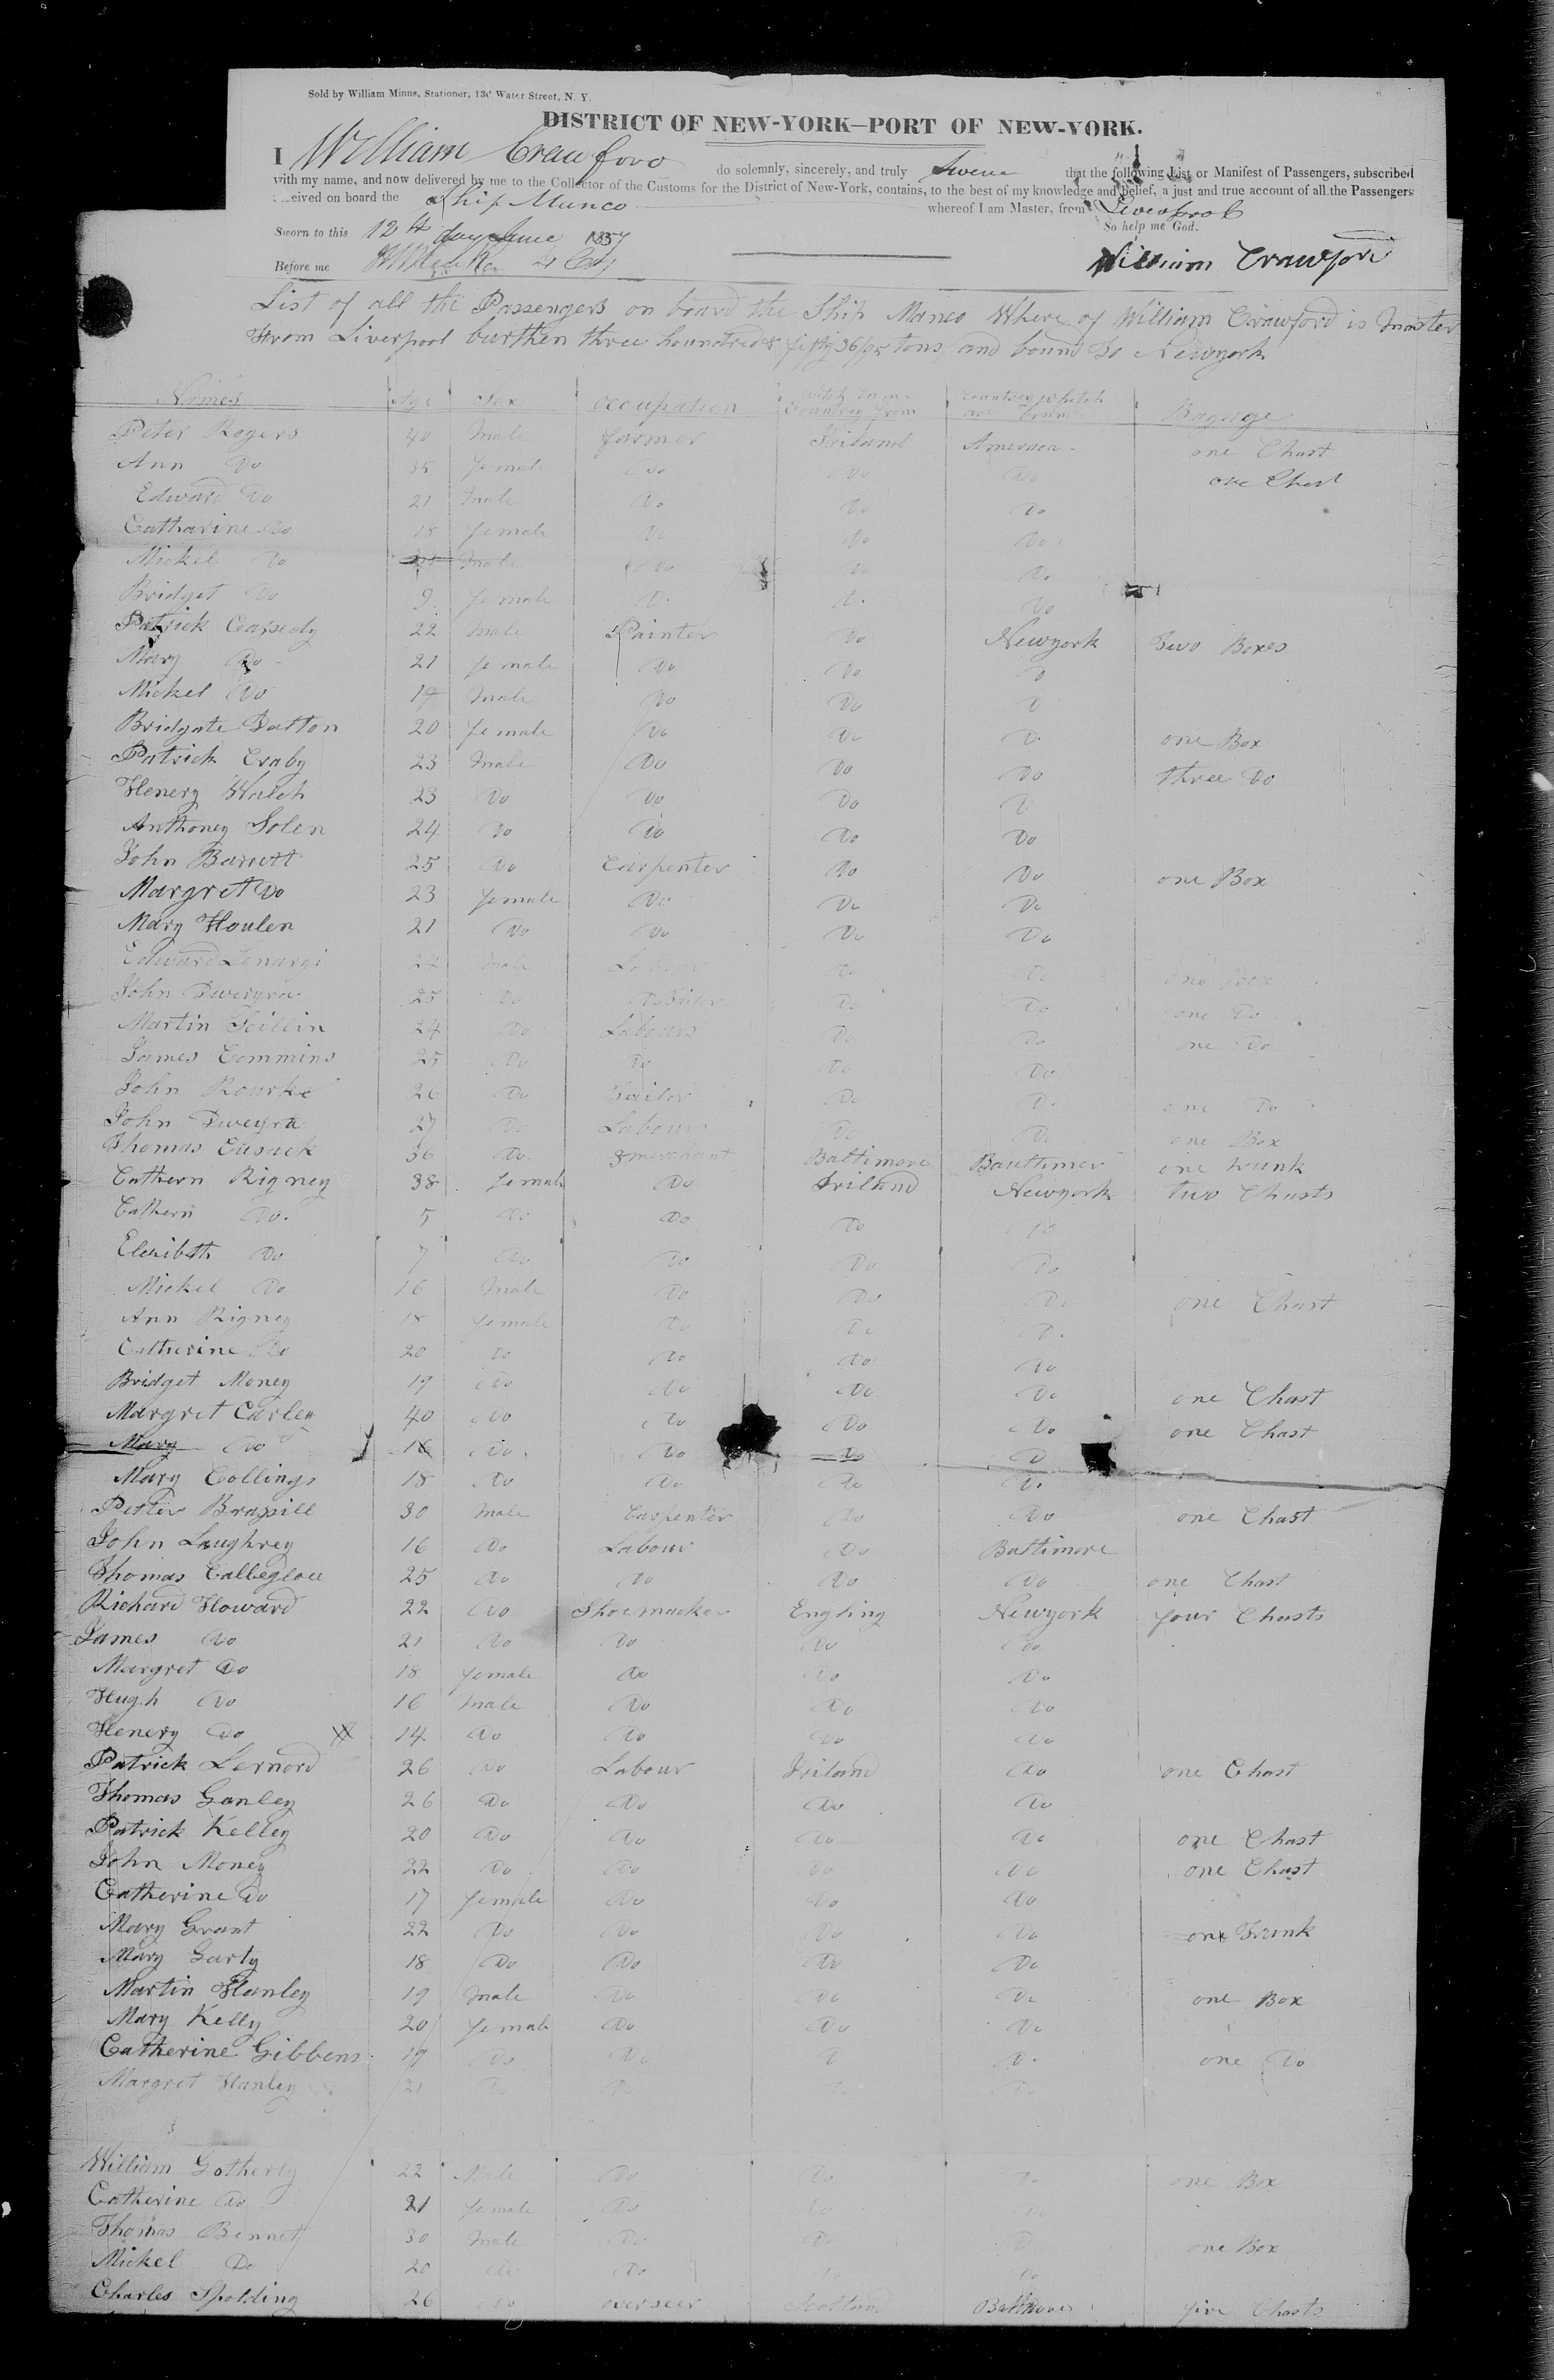 Sold by William Minns, Stationer, 13d Water Street, N. Y.
DISTRICT OF NEW-YORK—PORT OF NEW-YORK.
I William Crawford do solemnly, sincerely, and truly Swear that the following List or Manifest of Passengers, subscribed
with my name, and now delivered by me to the Collector of the Customs for the District of New-York, contains, to the best of my knowledge and belief, a just and true account of all the Passengers
received on board the Ship Munco whereof I am Master, from Liverpool
Sworn to this 12th day June 1837 So help me God.
Before me William Crawford
List of all the Passengers on board the Ship Manco Where of William Crawford is Master
From Liverpool burthen three houndred & fifty 36/95 tons and bound to Newyork
Names Age Sex occupation Country from Bagage
Peter Rogers 40 Male farmer Iriland Ameraca one Chast
Ann Do 35 female Do Do Do one Chest
Edward Do 21 male Do Do Do
Catharine Do 18 female Do Do Do
Mickel Do male Do Do Do
Bridget Do 9 female Do Do Do
Patrick Cassedy 22 male Painter Do Newyork Two Boxes
Mary Do 21 female Do Do D
Mickel Do 14 male Do Do D
Bridgate Datton 20 female Do Do D one Box
Patrick Craby 23 male Do Do Do three Do
Henery Walch 23 Do Do Do D
Anthoney Solen 24 Do Do Do Do
John Barrett 25 Do Carpenter Do Do one Box
Margret Do 23 female Do Do Do
Mary Houlen 21 Do Do Do Do
Edward Lenargi 22 male Labour Do Do one Box
John Dweyra 25 Do Do Do one Do
Martin 24 Do Labours Do Do one Do
James Commins 25 Do Do Do Do
John Rourke 26 Do Tailor Do D one Do
John Dweyra 27 Do Labour Do Do one Box
Thomas Cusack 36 Do merchant Baltimore Baultimer one trunk
Cathern Rigney 38 female Do Iriland Newyork two Chasts
Cathern Do 5 Do Do Do Do
Elezibeth Do 7 Do Do Do Do
Mickel Do 16 male Do Do Do one Chast
Ann Rigney 18 female Do Do D
Catherine Do 20 Do Do Do Do
Bridget Money 19 Do Do Do Do one Chast
Margret Carlen 40 Do Do Do Do one Chast
Mary Do 16 Do Do Do D
Mary Collings 18 Do Do Do D
Petter Brassill 30 male Carpenter Do Do one Chast
John Laughrey 16 Do Labour Do Baltimore
Thomas Callegloee 25 Do Do Do Do one Chast
Richard Howard 22 Do Shoemacker Engling Newyork four Chasts
James Do 21 Do Do Do Do
Margret Do 18 female Do Do Do
Hugh Do 16 male Do Do Do
Henery Do 14 Do Do Do Do
Patrick Lernord 26 Do Labour Iriland Do one Chast
Thomas Ganley 26 Do Do Do Do
Patrick Kelley 20 Do Do Do Do one Chast
John Money 22 Do Do Do Do one Chast
Catherine Do 17 female Do Do Do
Mary Grant 22 Do Do Do Do one Trunk
Mary Garly 18 Do Do Do Do
Martin Hanley 19 male Do Do Do one Box
Mary Kelly 20 female Do Do Do
Catherine Gibbens 19 Do Do D D one Do
Margret Hanley 21 Do Do
William Gotherly 22 Male Do Do Do one Box
Catherine Do 21 female Do
Thomas Bennett 30 male Do Do D one Box
Mickel Do 20 Do Do
Charles Spolding 26 Do overseer Scotland Baltimore five Chasts